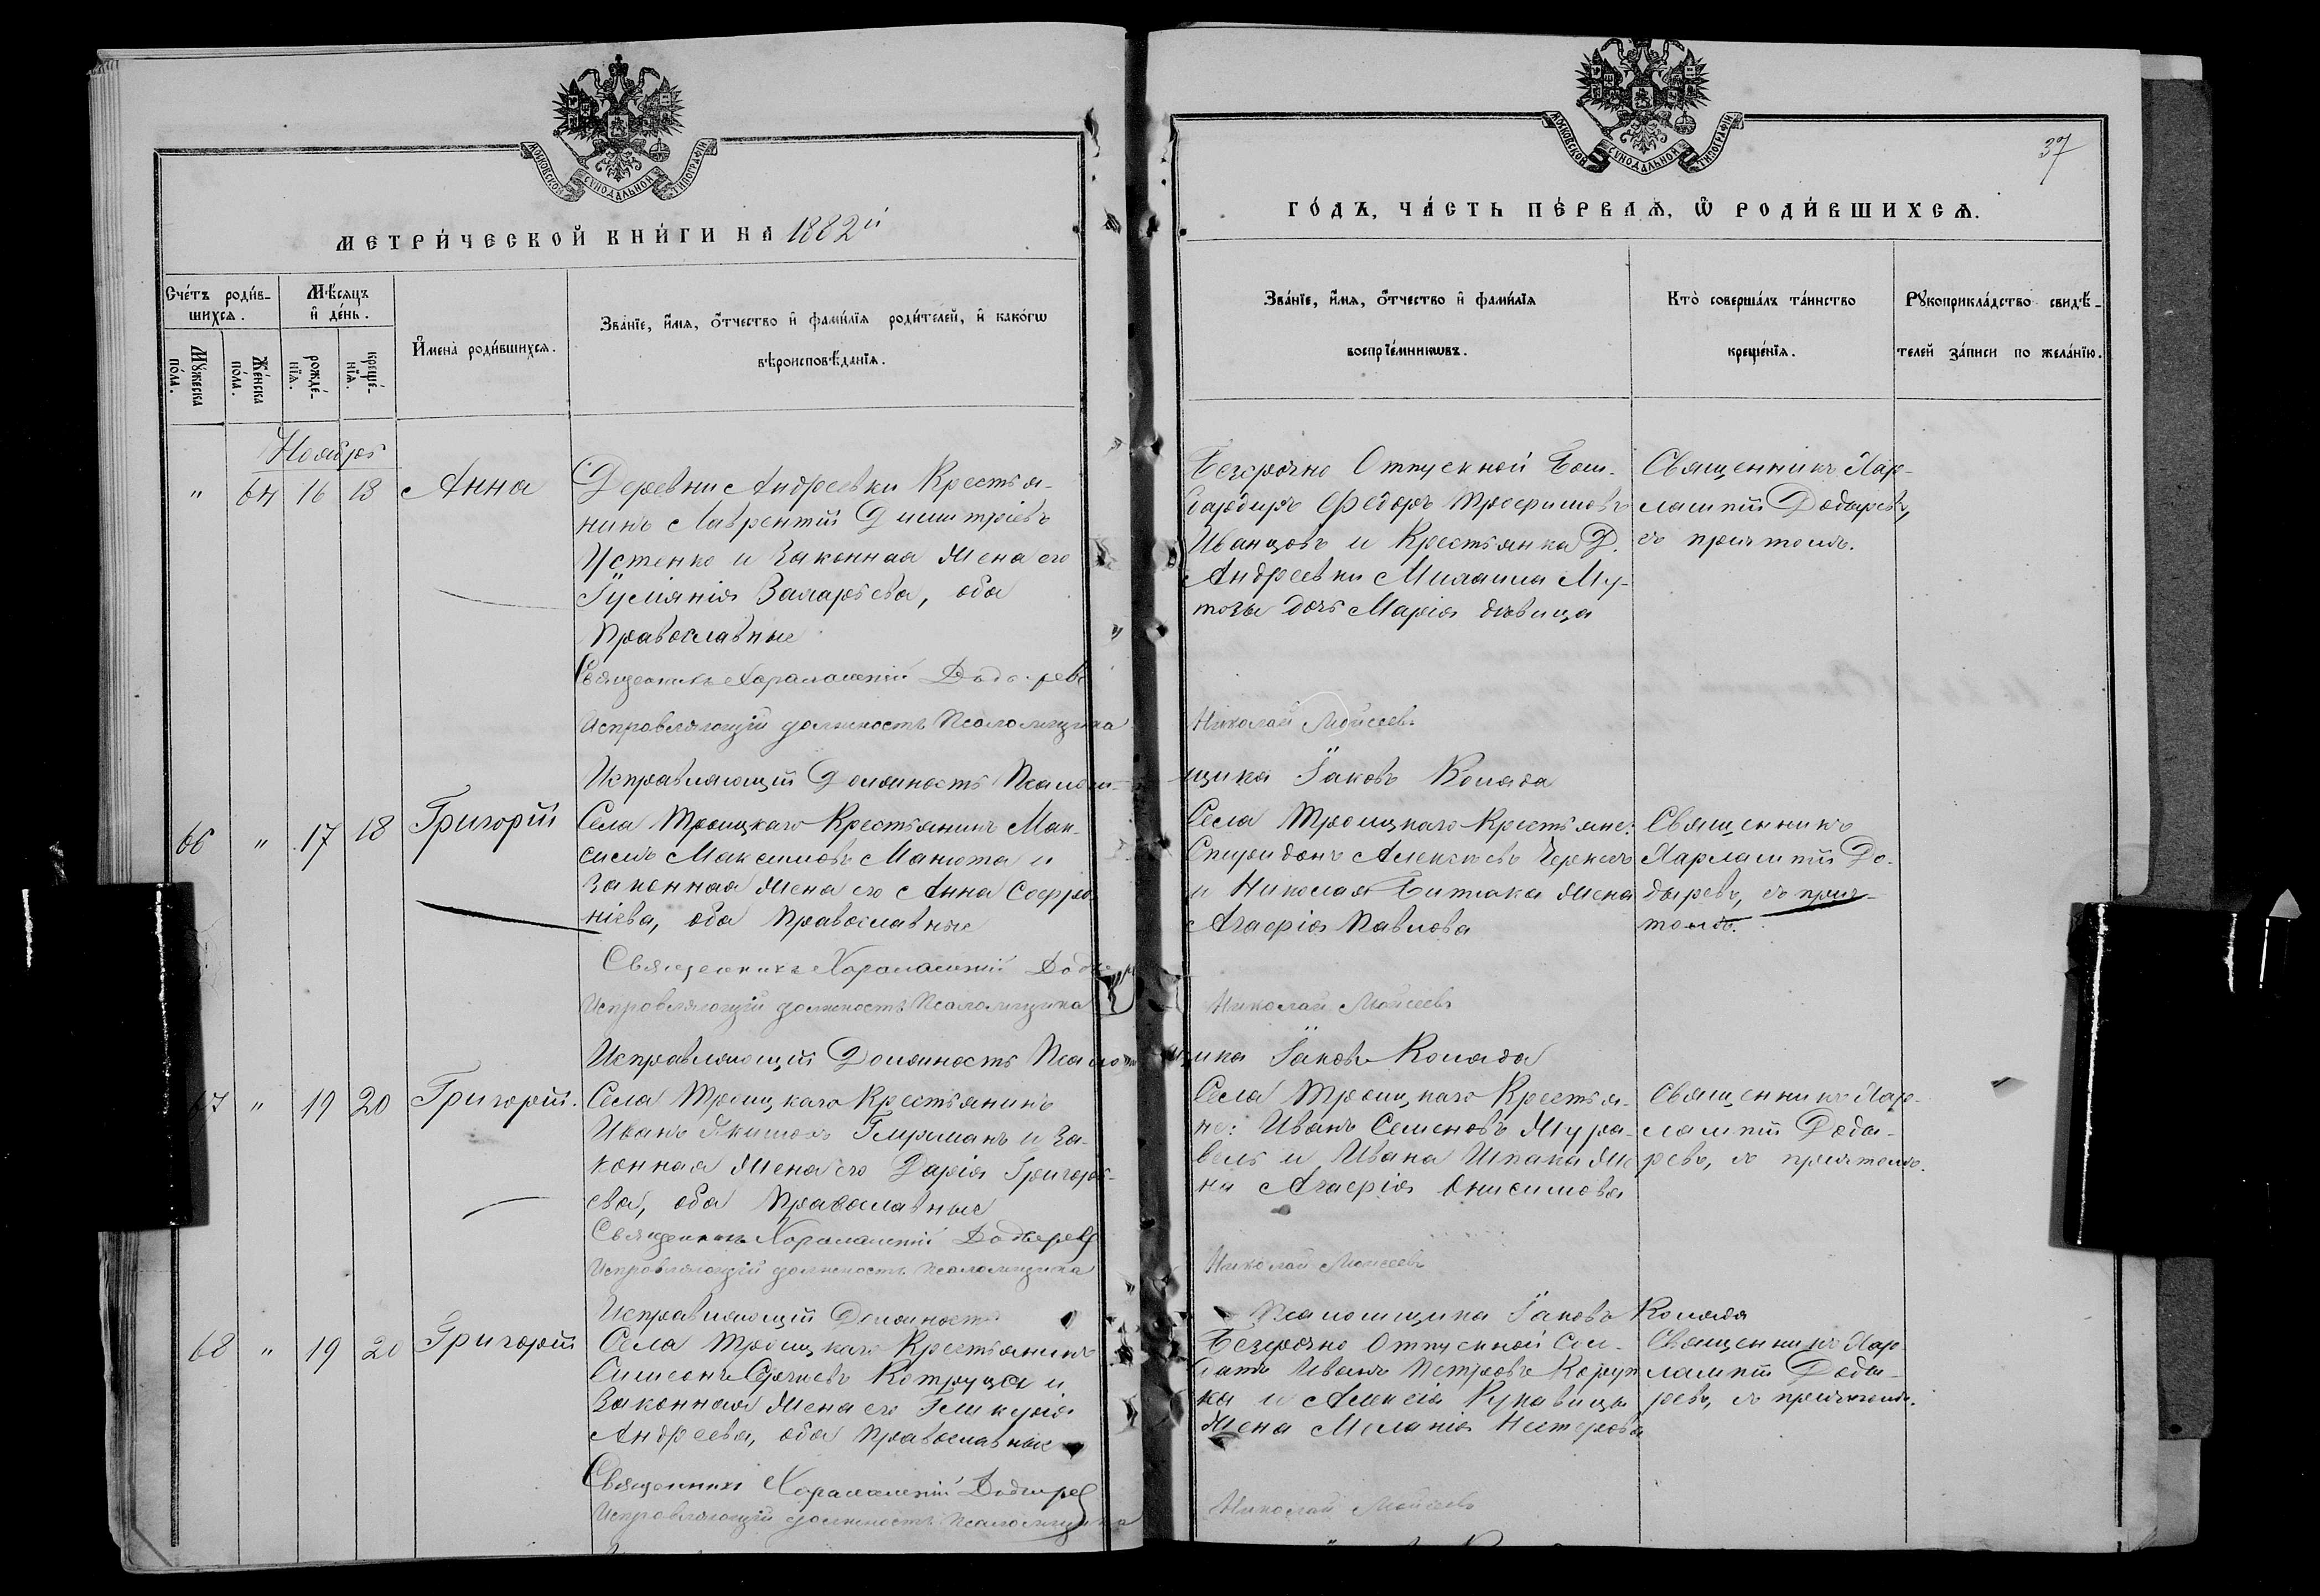 МОСКОВСКОЙ СУНОДАЛЬНОЙ ТИПОГРАФІИ
МЕТРИ́ЧЕСКОЙ КНИ́ГИ НА 1882й
Сче́тъ роди́в-
шихсѧ.
Мѣ́сѧцъ
и҆ де́нь.
Мꙋ́жеска
по́ла.
Же́нска
по́ла.
рожде́-
нїѧ.
креще́-
нїѧ.
И҆мена̀ роди́вшихсѧ.
Зва́нїе, и҆́мѧ, ѻ҆́тчество и҆ фами́лїѧ роди́телей, и҆ како́гѡ
вѣроисповѣ́данїѧ.
Ноябрь
" 64 16 18 Анна
Деревни Андреевки Крестья-
нинъ Лаврентій Димитріевъ
Устенко и Законная Жена его
Гуліянія Захарьева, оба
Православные
Священникъ Харалампій Додыревъ
Исправляющій должность Псаломщика
Исправляющій Должность Псаломщ-
66 " 17 18 Григорій
Села Троицкаго Крестьянинъ Мак-
симъ Максимовъ Манюта и
Законная Жена его Анна Софро-
ніева, оба Православные
Священникъ Харалампій Додыр
Исправляющій должность Псаломщика
Исправляющій Должность Псаломщ
67 " 19 20 Григорій.
Села Троицкаго Крестьянинъ
Иванъ Якимовъ и За-
конная Жена его Дарія Григорь-
ева, оба Православные
Священникъ Харалампій Додыревъ
Исправляющій должность Псаломщика
Исправляющій Должность
68 " 19 20 Григорій
Села Троицкаго Крестьянинъ
Симеонъ Сергіевъ Котруца и
Законная Жена его Гликерія
Андреева, оба Православные
Священникъ Харалампій Додырев
Исправляющій должность Псаломщика
МОСКОВСКОЙ СУНОДАЛЬНОЙ ТИПОГРАФІИ
37
ГО́ДЪ, ЧА́СТЬ ПЕ́РВАѦ, Ѡ҆ РОДИ́ВШИХСѦ.
Зва́нїе, и҆́мѧ, ѻ҆́тчество и҆ фами́лїѧ
воспрїе́мникѡвъ.
Кто̀ соверша́лъ та́инство
креще́нїѧ.
Рꙋкоприкла́дство свидѣ́-
телей за́писи по жела́нїю.
Безсрочно Отпускной Бом-
бардиръ Федоръ Трофимовъ
Иванцовъ и Крестьянка Д.
Андреевки Михаила Му-
тозы дочь Марія дѣвица
Священникъ Хар-
лампій Додыревъ,
съ причтомъ.
Николай Мойсеевъ
щика Іаковъ Коляда
Села Троицкаго Крестьяне:
Спиридонъ Алексѣевъ
и Николая Жена
Агафія Павлова
Священникъ
Харлампій До-
дыревъ, съ прич-
томъ.
Николай Мойсеевъ
щика Іаковъ Коляда
Села Троицкаго Крестья-
не: Иванъ Семеновъ Жура-
вель и Ивана Шпака Же
на Агафія Онисимова
Священникъ Хар-
лампій Доды-
ревъ, съ причтомъ.
Николай Мойсеевъ
Псаломщика Іаковъ Коляда
Безсрочно Отпускной Сол-
датъ Иванъ Петровъ
ка и Алексія Рукавицы
Жена Меланія Нестерова
Священникъ Хар
лампій Доды-
ревъ, съ причтомъ.
Николай Мойсеевъ